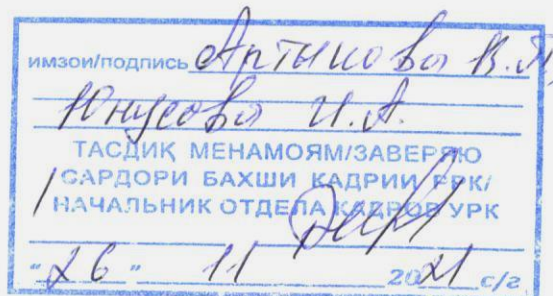 имзои/подпись Артыкова В.П.
Юнусова И.А.
ТАСДИҚ МЕНАМОЯМ/ЗАВЕРЯЮ
САРДОРИ БАХШИ КАДРИИ РРК/
НАЧАЛЬНИК ОТДЕЛА КАДРОВ УРК
"26" 11 2021 с/г